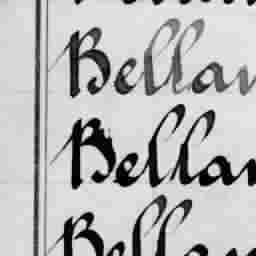 Bellan
Bellan
Bellan